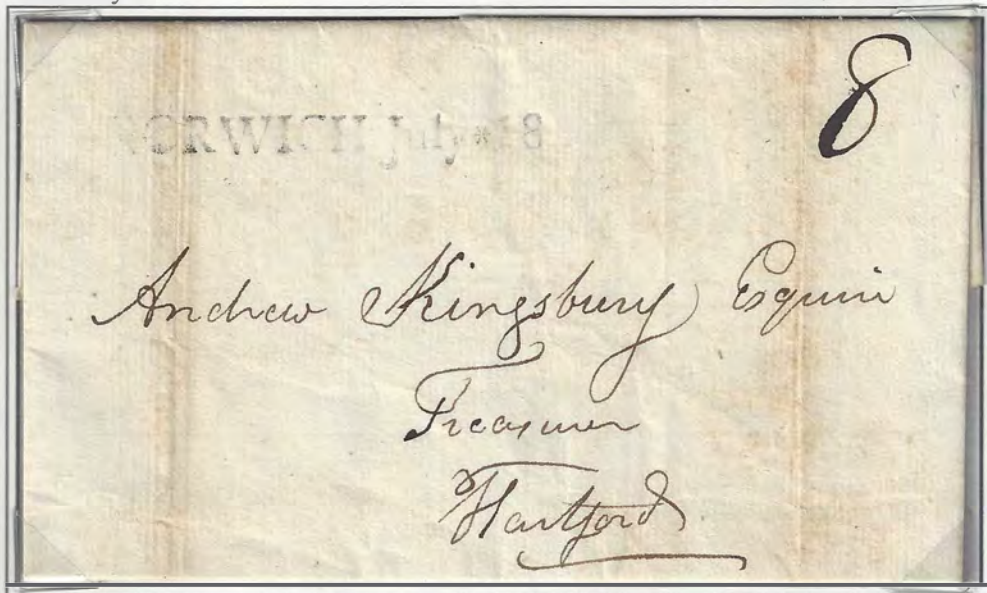 NORWICH July*18
8
Andrew Kingsbury Esquire
Treasurer
Hartford